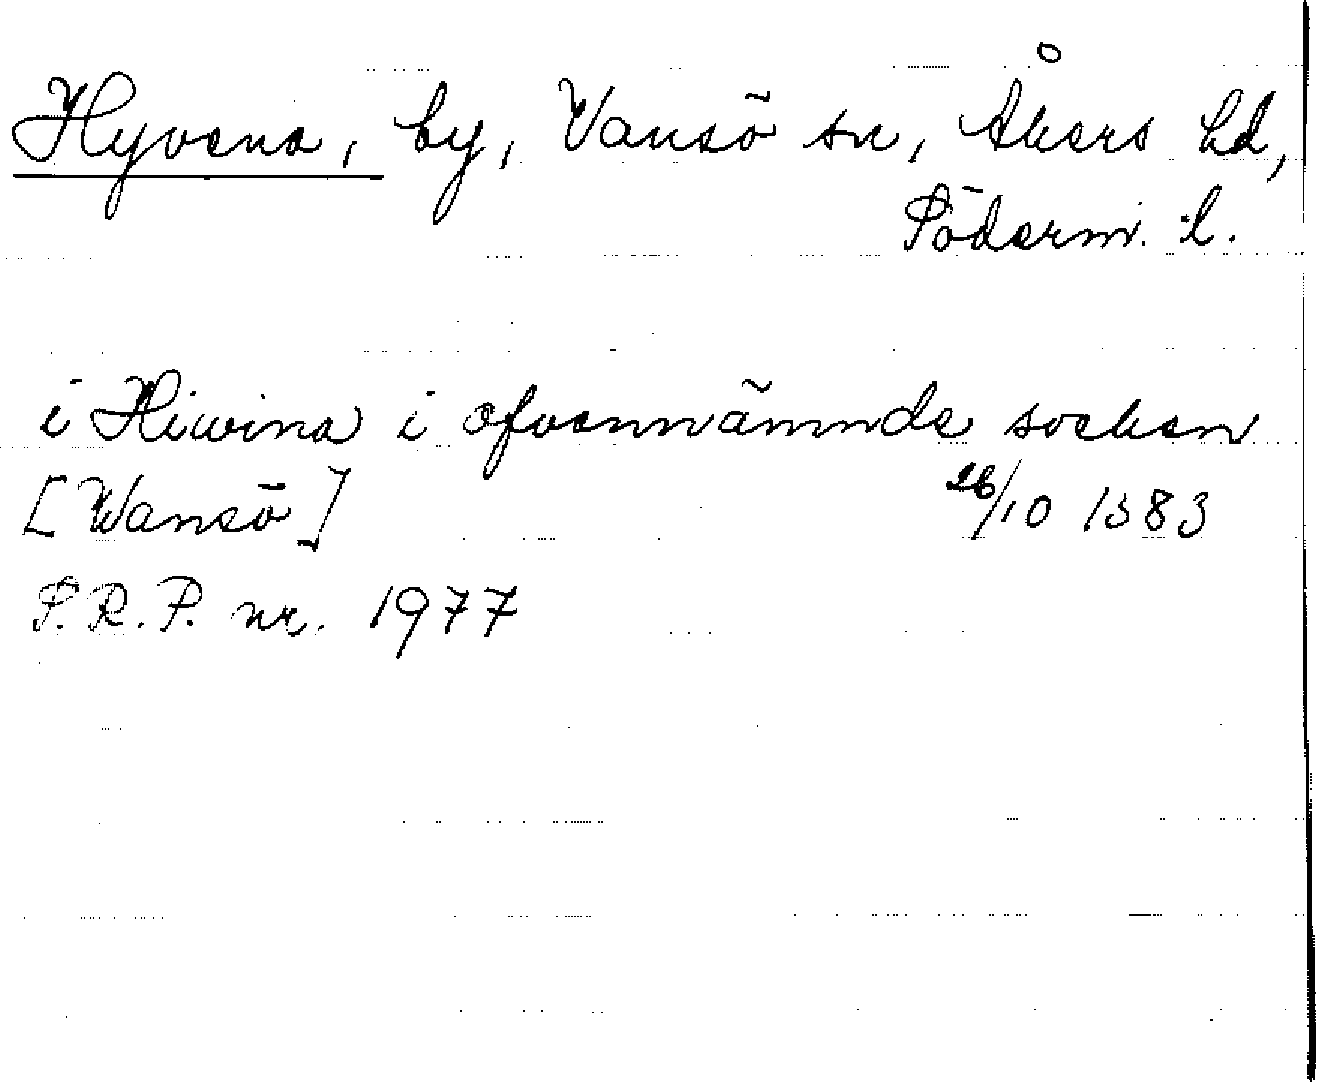 Hyvena, by, Vansö sn, Åkers hd,
Söderm. l.
i Hiwina i ofvennämnde socken
[Wansö] 26/10 1383
S.R.P. nr. 1977